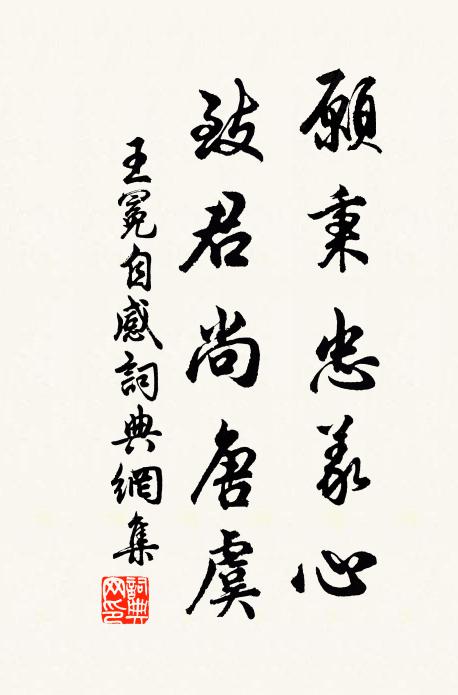 願秉忠義心
致君尚唐虞
王冕自感詞典網集
詞典
網印